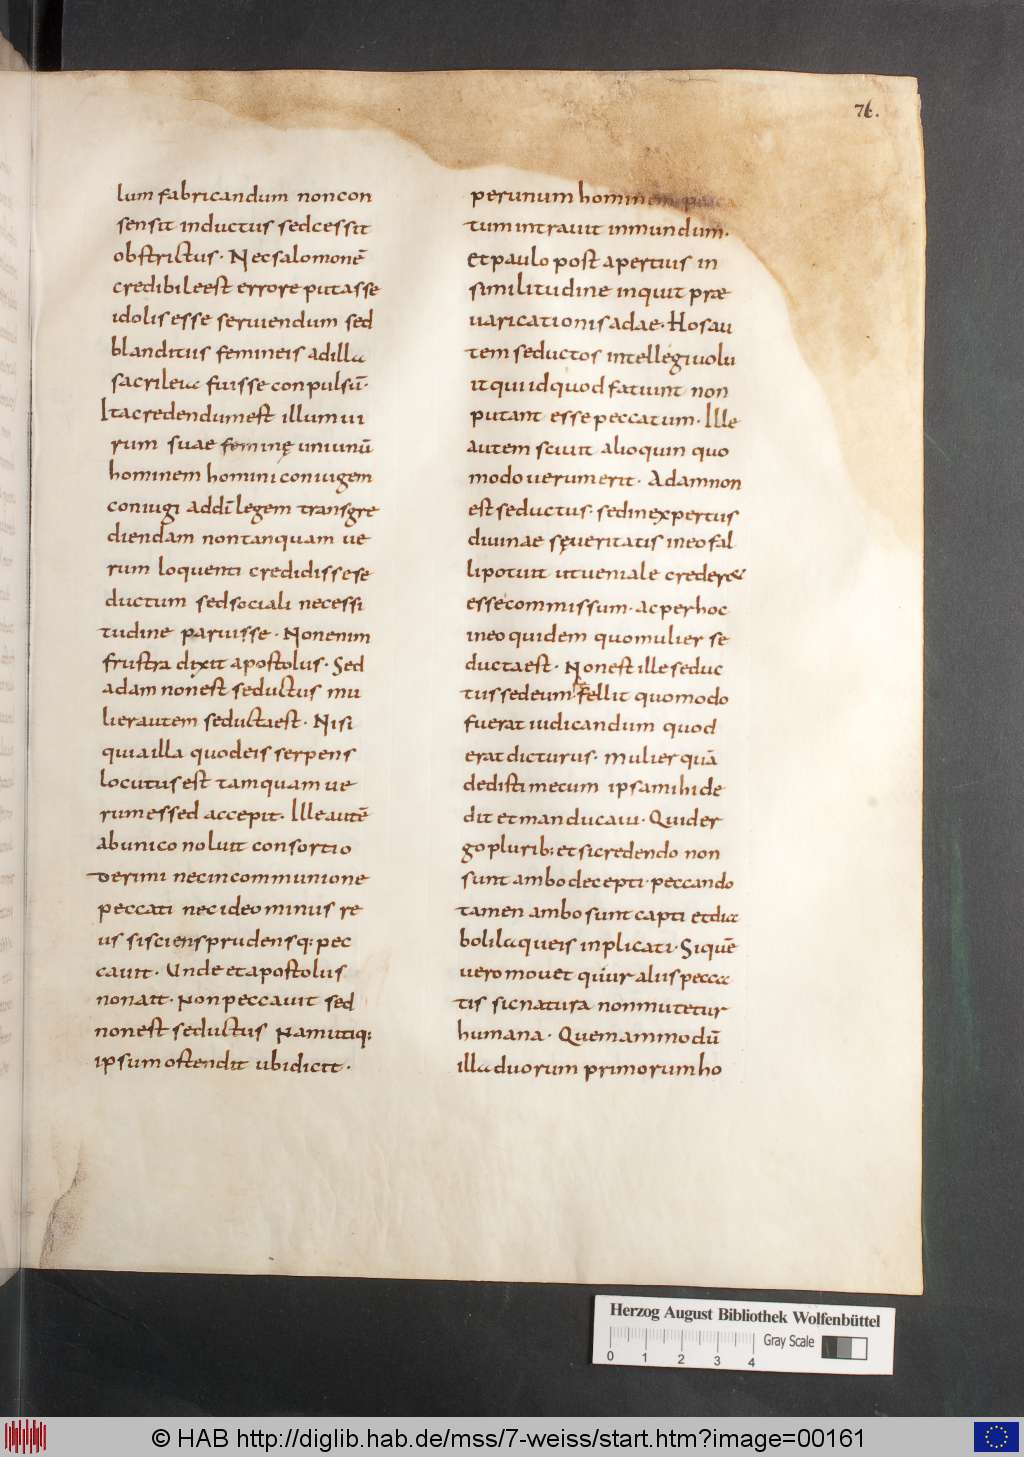 74.
lum fabricandum non con
sensit inductus sed cessit
obstrictus. Nec salomonē
credibile est errore putasse
idolis esse seruiendum sed
blanditiis femineis ad illa
sacrilegia fuisse conpulsū.
Ita credendum est illum ui
rum suae feminę uni unū
hominem homini coniugem
coniugi ad dī legem transgre
diendam non tanquam ue
rum loquenti credidisse se
ductum sed sociali necessi
tudine paruisse. Non enim
frustra dixit apostolus. Sed
adam non est seductus mu
lier autem seducta est. Nisi
quia illa quod eis serpens
locutus est tamquam ue
rum essed accepit. Ille autē
ab unico noluit consortio
derimi nec in communione
peccati nec ideo minus re
us si sciens prudensq; pec
cauit. Unde et apostolus
non ait. Non peccauit sed
non est seductus Nam utiq;
ipsum ostendit ubi dicit.
per unum hominem pecca
tum intrauit in mundum.
Et paulo post apertius in
similitudine inquit præ
uaricationis adae. Hos au
tem seductos intellegi uolu
it qui id quod faciunt non
putant esse peccatum. Ille
autem sciuit alioquin quo
modo uerum erit. Adam non
est seductus. sed inexpertus
diuinae sęueritatis in eo fal
li potuit ut ueniale crederet
esse commissum. ac per hoc
in eo quidem quo mulier se
ducta est. Non est ille seduc
tus sed eum fefellit quomodo
fuerat iudicandum quod
erat dicturus. mulier quā
dedisti mecum ipsa mihi de
dit et manducaui. Quid er
go plurib; et si credendo non
sunt ambo decepti. peccando
tamen ambo sunt capti et dia
boli laqueis inplicati. Si quē
uero mouet qúur aliis pecca
tis sic natura non mutetur
humana. Quemammodū
illa duorum primorum ho
Herzog August Bibliothek Wolfenbüttel
Gray Scale
0 1 2 3 4
© HAB http://diglib.hab.de/mss/7-weiss/start.htm?image=00161